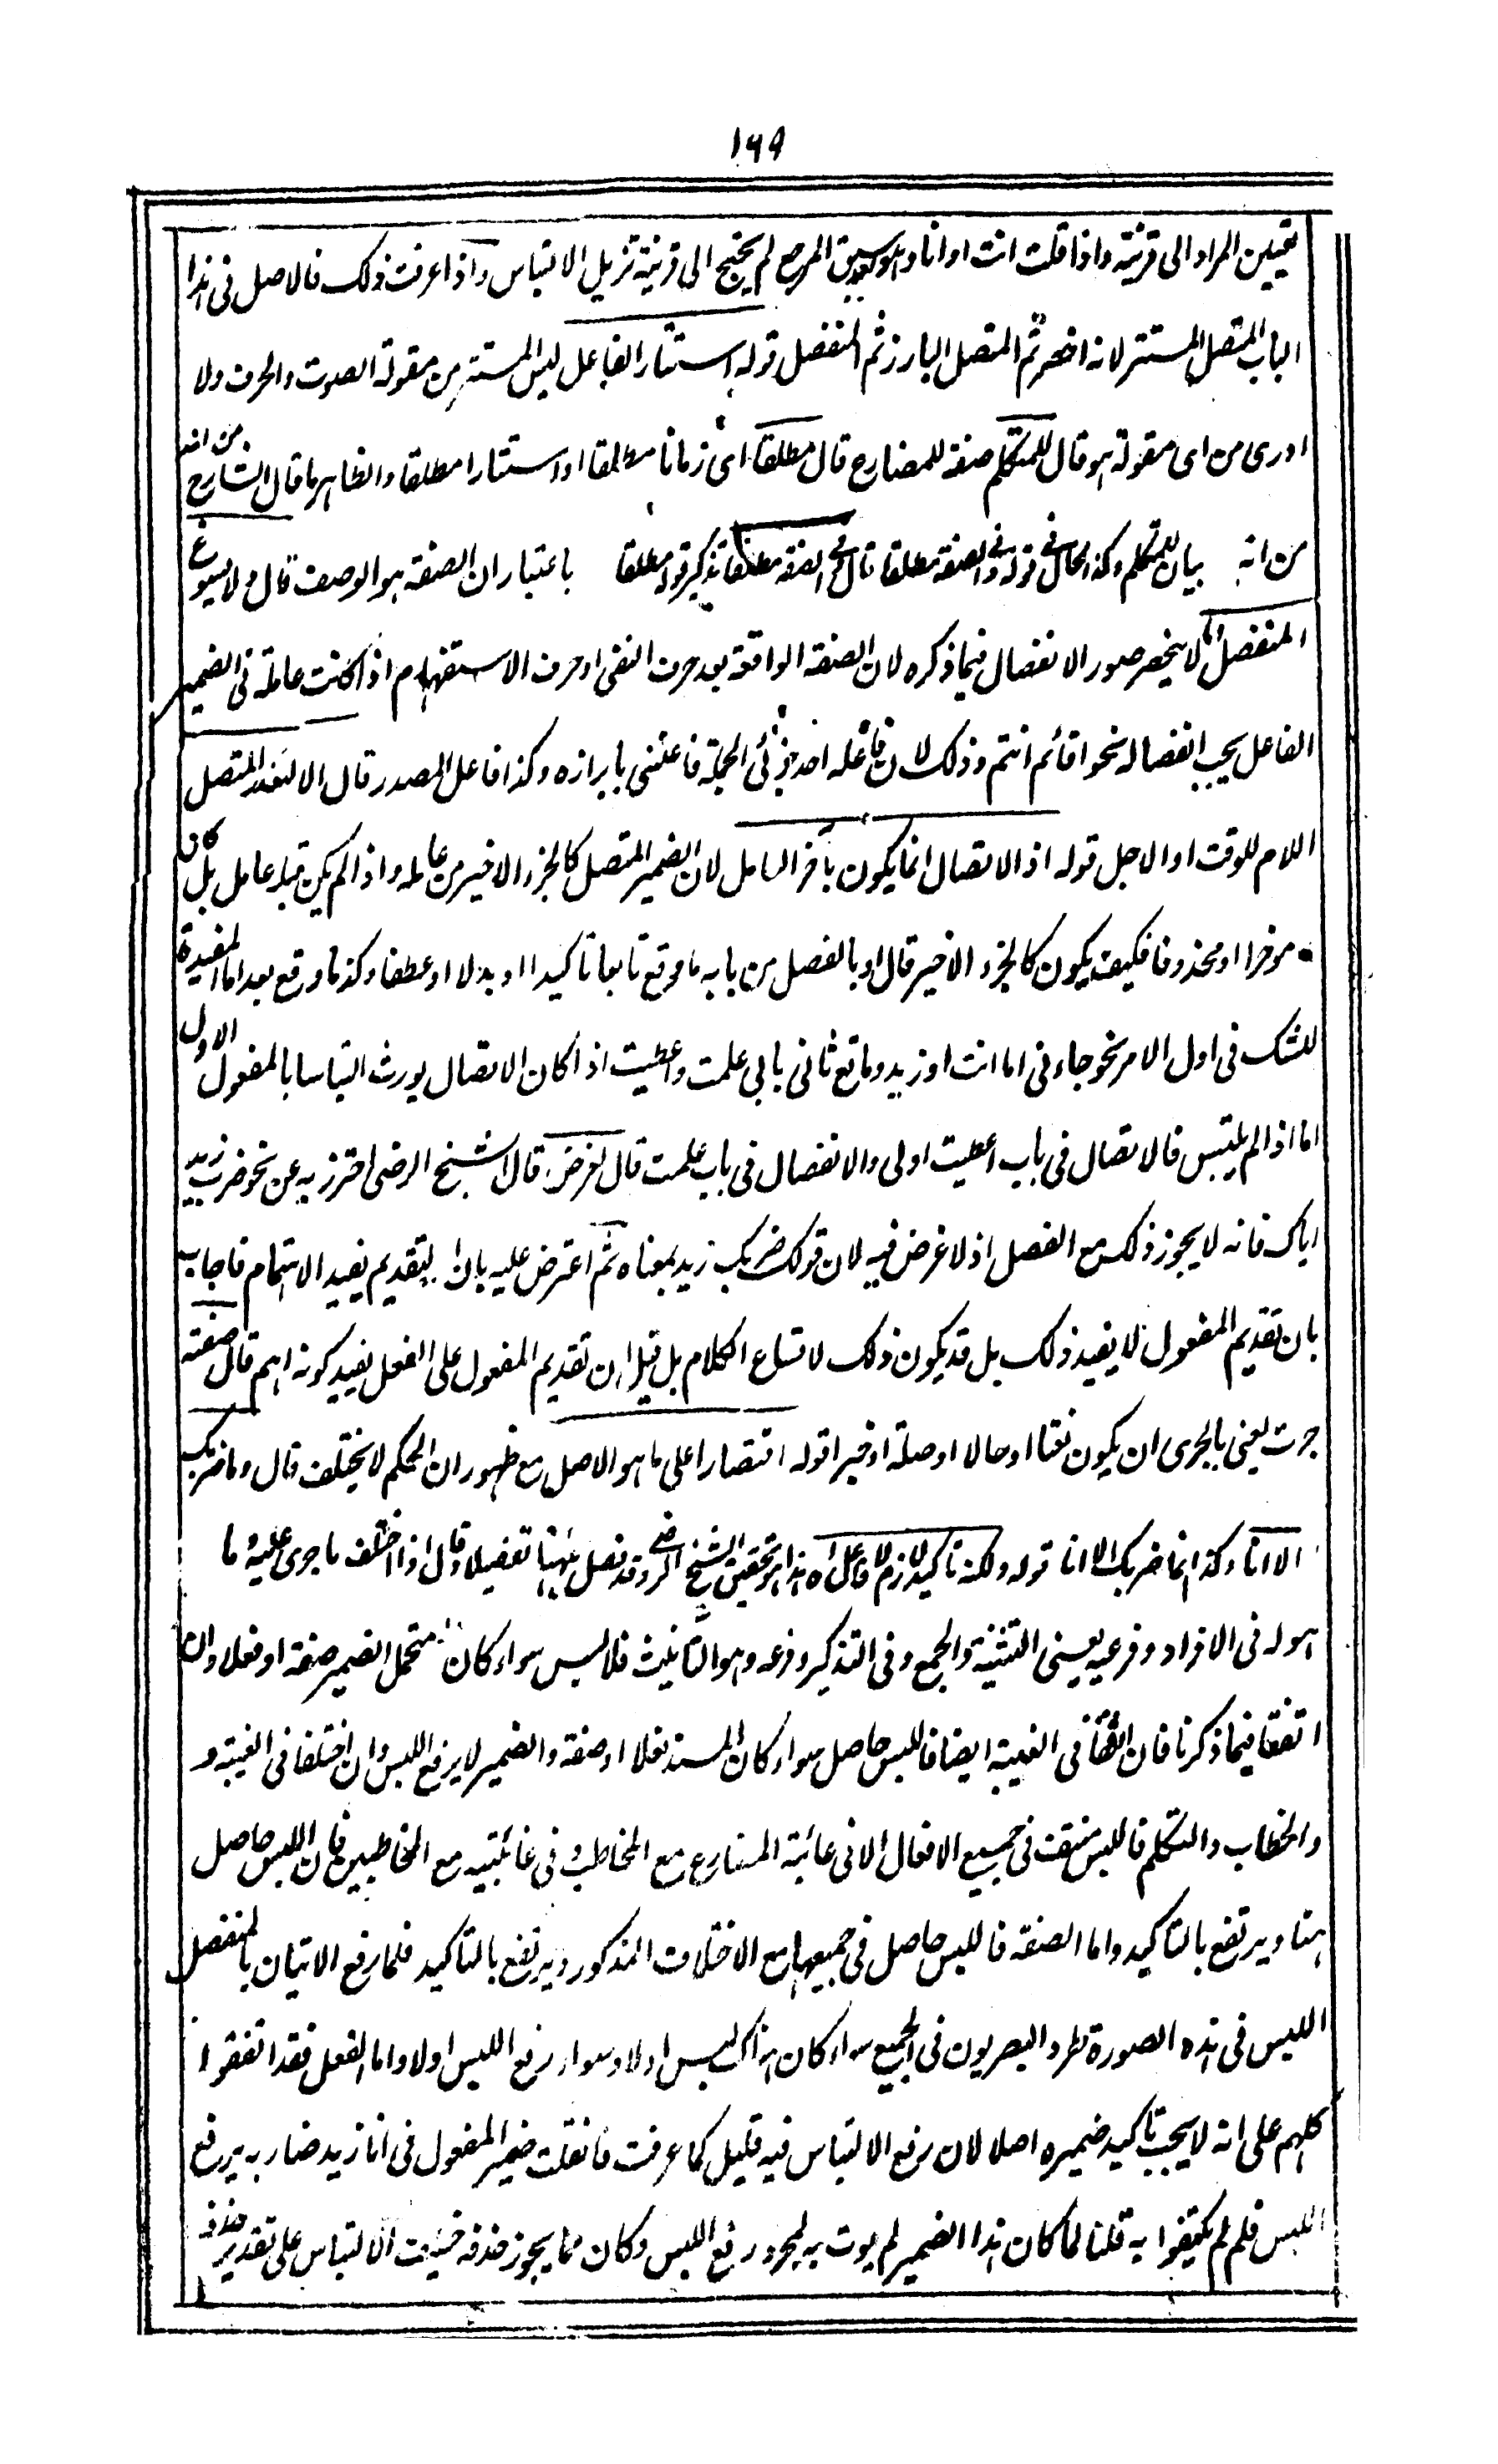 ١٦٩
تعيين المراد الى قرينة واذا قلت انت او انا وهو بعد سبق المرجع لم يحتج الى قرينة تزيل الالتباس واذا عرفت ذلك فالاصل فى هذا
الباب المتصل المستتر لانه اخصر ثم المتصل البارز ثم المنفصل قوله استتار الفاعل ليس المستتر من مقولة الصوت والحرف ولا
ادرى من اى مقولة هو قال للمتكلم صفة للمضارع قال مطلقا اى زمانا مطلقا او استتارا مطلقا والظاهر ما قال الشارح من انه
من انه بيان للمتكلم وكذا الحال فى قوله وفى الصفة مطلقا قال وفى الصفة مطلقا تذكير قوله مطلقا باعتبار ان الصفة هو الوصف قال ولا يسوغ
المنفصل الا لا ينحصر صور الانفصال فيما ذكره لان الصفة الواقعة بعد حرف النفى او حرف الاستفهام اذا كانت عاملة فى الضمير
الفاعل يجب انفصاله نحو اقائم انتم وذلك لان فاعله احد جزئى الجملة فاعتنى بابرازه وكذا فاعل المصدر قال الا لتعذر المتصل
اللام للوقت او الاجل قوله اذ الاتصال انما يكون بآخر العامل لان الضمير المتصل كالجزء الاخير من عامله واذا لم يكن قبله عامل بل كان
موخرا او محذوفا فكيف يكون كالجزء الاخير قال او بالفصل من بابه ما وقع تابعا تاكيدا او بدلا او عطفا وكذا ما وقع بعد اما المفيدة
للشك فى اول الامر نحو جاءنى اما انت او زيد وما وقع ثانى بابى علمت واعطيت اذا كان الاتصال يورث التباسا بالمفعول الاول
اما اذا لم يلتبس فالاتصال فى باب اعطيت اولى والانفصال فى باب علمت قال لغرض قال الشيخ الرضى احترز به عن نحو ضرب زيد
اياك فانه لا يجوز ذلك مع الفصل اذ لا غرض فيه لان قولك ضربك زيد بمعناه ثم اعترض عليه بان التقديم يفيد الاهتمام فاجاب
بان تقديم المفعول لا يفيد ذلك بل قد يكون ذلك لاتساع الكلام بل قيل ان تقديم المفعول على الفعل يفيد كونه اهم قال صفة
جرت يعنى بالجرى ان يكون نعتا او حالا او صلة او خبرا قوله اقتصارا على ما هو الاصل مع ظهور ان الحكم لا يختلف قال وما ضربك
الا انا وكذا انما ضربك الا انا قوله ولكنه تاكيد لازم لا فاعل اه هذا هو تحقيق الشيخ الرضى وقد فصل ههنا تفصيلا وقال اذا اختلف ما جرى عليه وما
هو له فى الافراد وفرعيه يعنى التثنية والجمع وفى التذكير وفرعه وهو التانيث فلا لبس سواء كان متحمل الضمير صفة او فعلا وان
اتفقا فيما ذكرنا فان اتفقا فى الغيبة ايضا فاللبس حاصل سواء كان المسند فعلا او صفة والضمير لا يرفع اللبس وان اختلفا فى الغيبة و
والخطاب والتكلم فاللبس منتف فى جميع الافعال الا فى غائبة المضارع مع المخاطب وفى غائبتيه مع المخاطبين فان اللبس حاصل
هنا ويرتفع بالتاكيد واما الصفة فاللبس حاصل فى جميعها مع الاختلاف المذكور ويرتفع بالتاكيد فلما رفع الاتيان بالمنفصل
اللبس فى هذه الصورة طرد البصريون فى الجميع سواء كان هناك لبس او لا وسواء رفع اللبس او لا واما الفعل فقد اتفقوا
كلهم على انه لا يجب تاكيد ضميره اصلا لان رفع الالتباس فيه قليل كما عرفت فان قلت ضمير المفعول فى انا زيد ضاربه يرفع
اللبس فلم لم يكتفوا به قلنا لما كان هذا الضمير لم يوت به لمجرد رفع اللبس وكان مما يجوز حذفه خيفت الالتباس على تقدير حذفه